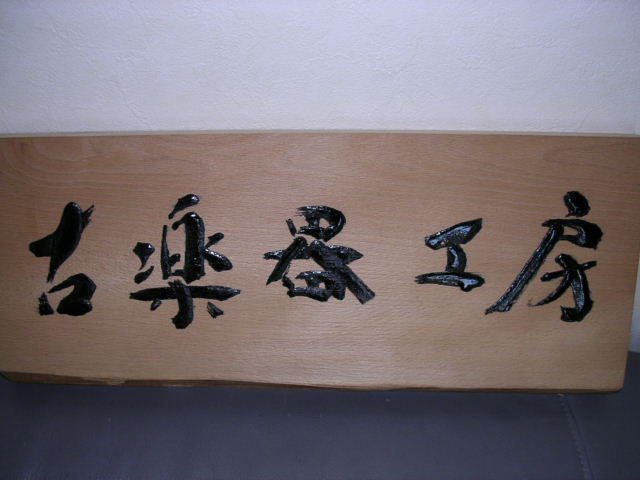 古楽器工房